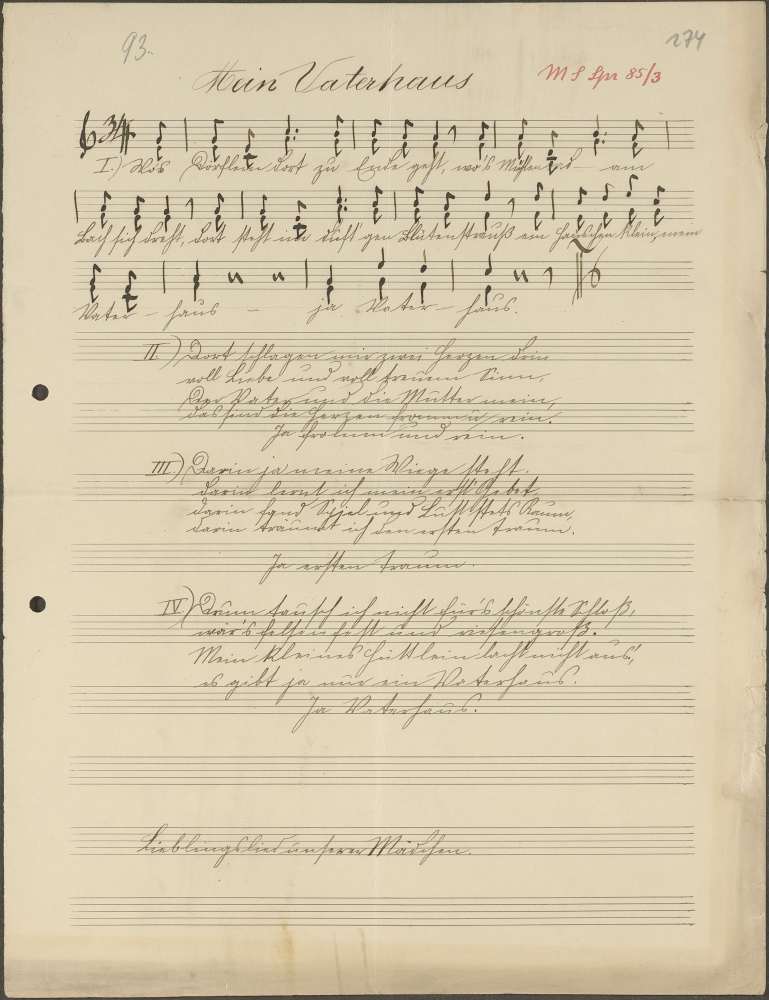 93.
274
Mein Vaterhaus
M S Spr 85/3
3/4
I.) Wo's Dörflein dort zu Ende geht, wo's Mühlenrad am
Bach sich dreht, dort steht im duft'gen Blütenstrauß ein Häuschen klein, mein
Vater - haus - ja Vater - haus.
II.) Dort schlagen mir zwei Herzen drin
voll Liebe und voll treuem Sinn,
Der Vater und die Mutter mein,
das sind die Herzen fromm u. rein.
Ja fromm und rein.
III.) Darin ja meine Wiege steht.
darin lernt ich mein erst Gebet,
darin fand Spiel und Lust stets Raum,
darin träumt ich den ersten Traum.
Ja ersten Traum.
IV.) Drum tausch ich nicht für's schönste Schloß,
wär's felsenfest und riesengroß.
Mein kleines Hüttlein lacht nicht aus!,
es gibt ja nur ein Vaterhaus.
Ja Vaterhaus.
Lieblingslied unserer Mädchen.